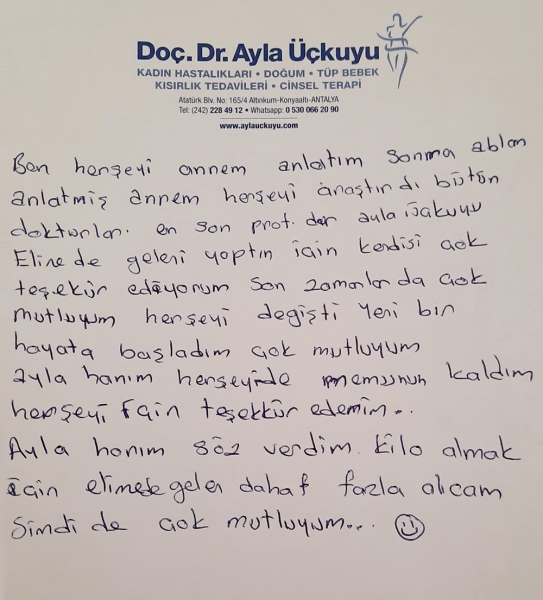 Doç. Dr. Ayla Üçkuyu
KADIN HASTALIKLARI • DOĞUM • TÜP BEBEK
KISIRLIK TEDAVİLERİ • CİNSEL TERAPİ
Atatürk Blv. No: 165/4 Altınkum-Konyaaltı-ANTALYA
Tel: (242) 228 49 12 • Whatsapp: 0 530 066 20 90
www.aylauckuyu.com
Ben herşeyi annem anlattım sonma ablam
anlatmiş annem herşeyi araştırdı bütün
doktorları. en son prof. dor ayla üçkuyu
Eline de geleni yoptın için kendisi çok
teşekür ediyorum son zamanlar da çok
mutluyum herşeyi degişti Yeni bir
hayata başladım çok mutluyum
ayla hanım herşeyinde memnunun kaldım
herşeyi için teşekkür ederim..
Ayla hanım söz verdim. Kilo almak
için elimde gelen dahaf fazla alıcam
Şimdi de çok mutluyum...